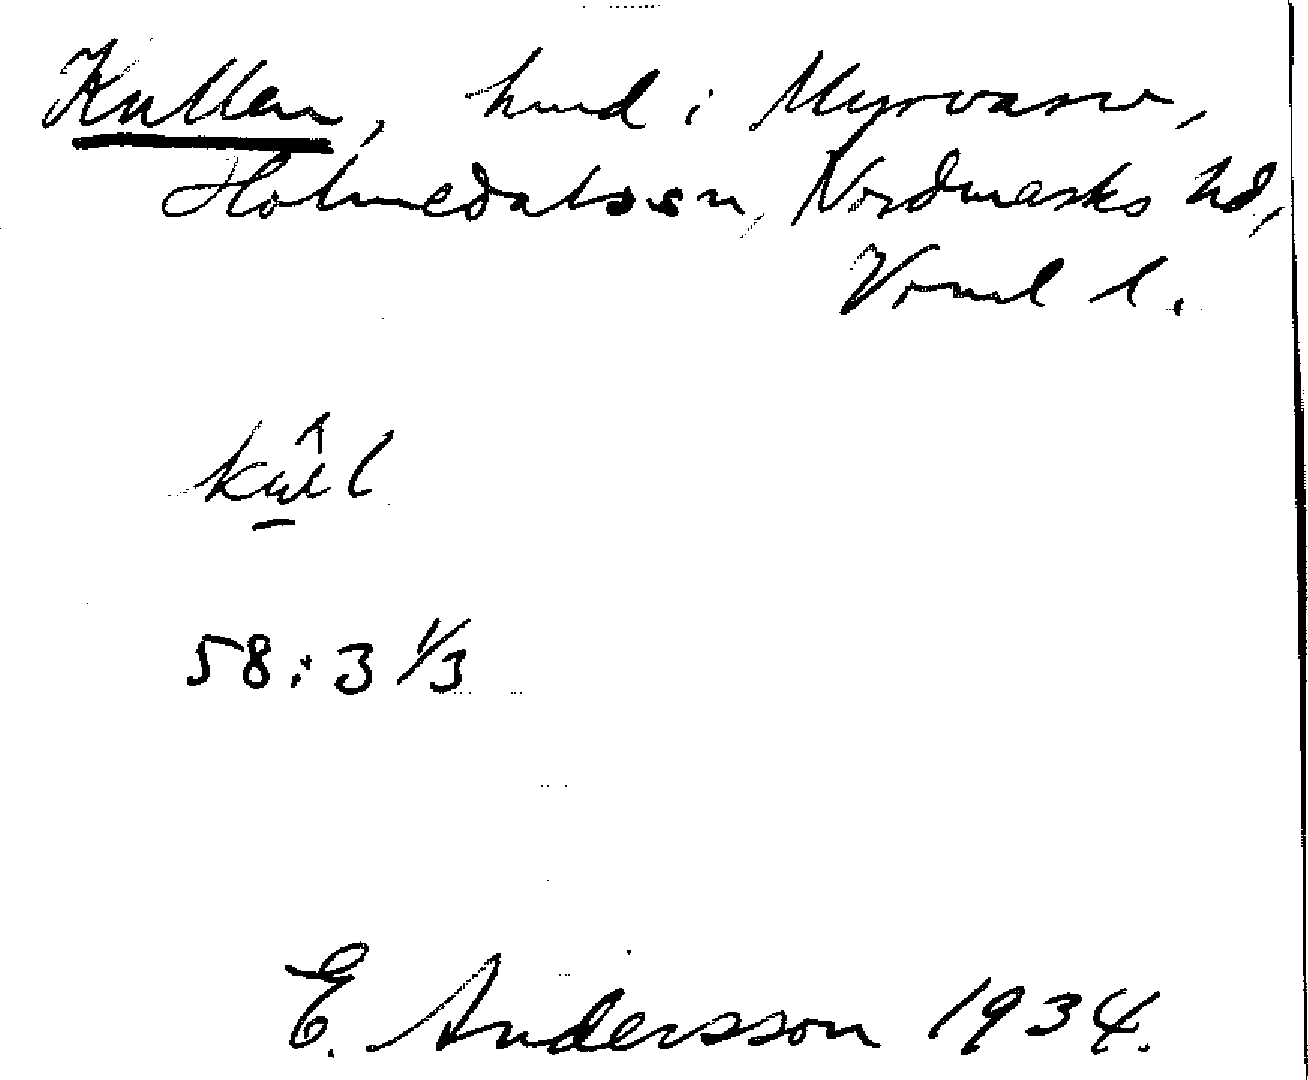 Kullen, hmd i Myrvarv,
Holmedals sn, Nordmarks hd,
Vrml l.
58:3 1/3
E. Andersson 1934.